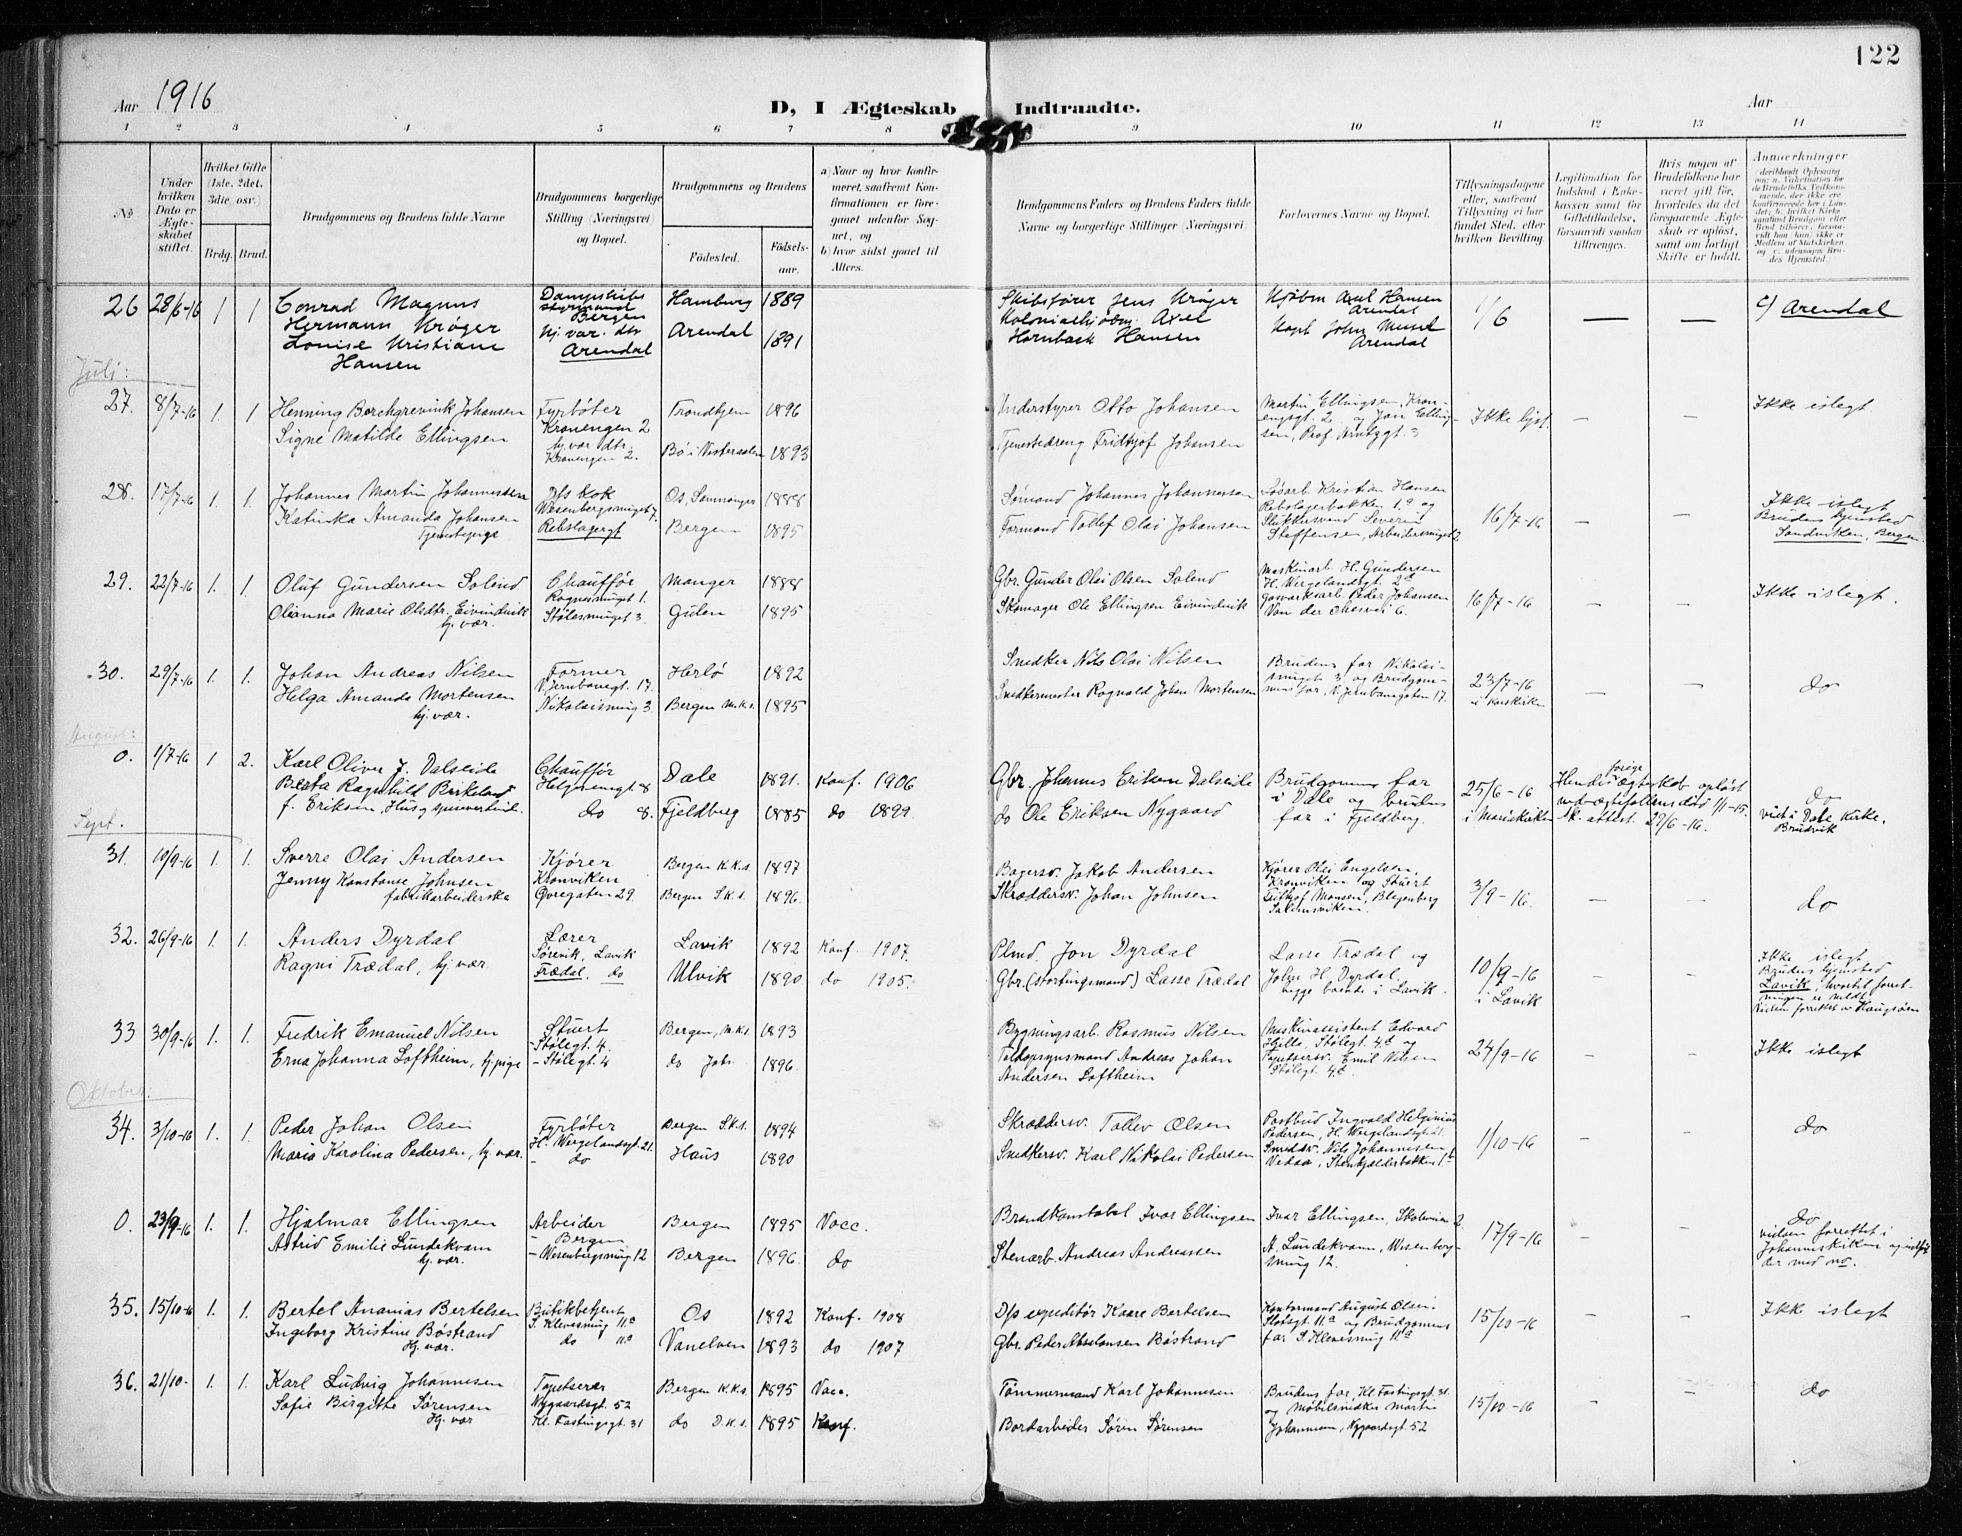 122
Aar 1916
D, I Ægteskab Indtraadte.
Aar
1 2 3 4 5 6 7 8 9 10 11 12 13 14
№
Under hvilken Dato er Ægteskabet stiftet.
Hvilket Gifte (1ste, 2det, 3die osv.)
Brdg. Brud.
Brudgommens og Brudens fulde Navne
Brudgommens borgerlige Stilling (Næringsvei) og Bopæl.
Brudgommens og Brudens
Fødested.
Fødselsaar.
a) Naar og hvor konfirmeret, saafremt Konfirmationen er foregaaet udenfor Sognet, og
b) hvor sidst gaaet til Alters.
Brudgommens Faders og Brudens Faders fulde Navne og borgerlige Stillinger (Næringsvei)
Forlovernes Navne og Bopæl.
Tillysningsdagene eller, saafremt Tillysning ei har fundet Sted, efter hvilken Bevilling.
Legitimation for Indskud i Enkekassen samt for Giftetilladelse, forsaavidt saadan tiltrænges.
Hvis nogen af Brudefolkene har været gift før, hvorledes da det foregaaende Ægteskab er opløst, samt om lovligt Skifte er holdt.
Anmerkninger
26 28/6-16 1 1 Conrad Magnus Hermann Krøger
Dampskibs styrmand Bergen Hamburg 1889
Louise Kristiane Hansen
hj. var. dtr Arendal Arendal 1891
Skibsfører Jens Krøger
Kolonialkjøbm. Axel Hornbæk Hansen
Kjøbm Axel Hansen Arendal
Arendal
1/6 — — c) Arendal
Juli:
27. 8/7-16 1. 1 Henning Borchgrevink Johansen
Fyrbøter Kronengen 2 Trondhjem 1896
Signe Matilde Ellingsen
hj. var dtr. Kronengen 2. Bø i Vesteraalen 1893
Understyrer Otto Johansen
Tjenestedreng Fridtjof Johansen
Martin Ellingsen, Kronengsgt. 2 og Jon Ellingsen,
Ikke lyst — — Ikke islegt
28. 17/7-16 1. 1. Johannes Martin Johannessen
D/s kok Wesenbergsmuget 7. Os, Samnanger 1888
Katinka Amanda Johansen
Tjenestepige Rebslagergt Bergen 1895
Sømand Johannes Johannessen
Formand Tollef Olai Johansen
Løsarb. Kristian Hansen Rebslagerbakken 1.a og
Stykkersvend Severin Steffensen, Arbeidersmuget 2.
16/7-16 — — Ikke islegt
Brudens hjemsted Sandviken, Bergen
29. 22/7-16 1. 1. Oluf Gundersen Solend
Chauffør Manger 1888
Olianna Marie Olsdtr. Eivindvik
hj. vær. Stølesmuget 3. Gulen 1895
Gbr. Gunder Olai Olsen Solend
Skomager Ole Ellingsen Eivindvik
Maskinarb. H. Gundersen H. Wergelandsgt. 2
Gasverksarb. Peder Johansen
16/7-16 — — Ikke islegt.
30. 29/7-16 1. 1. Johan Andreas Nilsen
Former V. Jernbanegt. 17. Herlø 1892
Helga Amanda Mortensen
hj. vær. Nikolaismug 3. Bergen M.k.s. 1895
Snedker Nils Olai Nilsen
Snedkermester Ragnvald Johan Mortensen
Brudens far Nikolaismuget 3 og Brudgommens far, V. Jernbanegaten 17.
23/7-16 i Korskirken — — do
August:
0. 1/7-16 1 2. Karl Oliver J. Dalseide
Chauffør Helgesensgt 8 Dale 1891. Konf. 1906
Berta Ragnhild Birkeland f. Eriksen
do 8. Fjeldberg 1885 do 1899.
Gbr. Johannes Eriksen Dalseide
do Ole Eriksen Nygaard
Brudgommens far i Dale og brudens far i Fjeldberg.
25/6-16 i Mariekirken
Hendes forrige ægteskab opløst ved ægtefællens død 1/1-15. Sk. attest. 29/6-16.
do
viet i Dale Kirke. Bruvik
Sept.
31. 10/9-16 1. 1. Sverre Olai Andersen
Kjører Kronviken Bergen K.k.s. 1897
Jenny Konstanse Johnsen
fabrikarbeiderske Øvregaten 29. Bergen S.k.s. 1896.
Bagersv. Jakob Andersen
Skræddersv. Johan Johnsen
Kjører Olai Engelsen, Kronviken og Stuert
3/9-16. — — do
32. 26/9-16 1. 1. Anders Dyrdal
Lærer Sørevik, Lavik Lavik 1892 Konf. 1907.
Ragni Trædal, hj. vær.
Trædal, do Ulvik 1890 do 1905.
Plmd. Jon Dyrdal
Gbr. (stortingsmand) Lasse Trædal
Lasse Trædal og John H. Dyrdal begge boende i Lavik.
10/9-16 i Lavik — — Ikke islegt
Brudens hjemsted Lavik, hvortil
33 30/9-16 1. 1. Fredrik Emanuel Nilsen
Stuert Stølegt. 4. Bergen, M.k.s. 1893
Erna Johanna Loftheim, hj. pige
- Stølegt. 4 do Joh. 1896.
Bygningsarb. Rasmus Nilsen
Toldopsynsmand Andreas Johan Andersen Loftheim
Maskinassistent Edvard Hille, Stølegt. 4 og
Tapetsersv. Emil Nilsen Stølegt. 4
24/9-16 — — Ikke islegt
Oktober:
34. 3/10-16 1. 1. Peder Johan Olsen
Fyrbøter H. Wergelandsgt 21. Bergen S.k.s. 1894
Marie Karolina Pedersen, hj. vær.
- do Haus 1890
Skræddersv. Tollev Olsen
Snedkersv. Karl Nikolai Pedersen
Postbud Ingvald Pedersen, H. Wergelandsgt. 21.
Smedsv. Nils Johannesen Vedaa, Stenkjælderbakken 1
1/10-16 — — do
0. 23/9-16 1. 1. Hjalmar Ellingsen
Arbeider - Bergen Bergen 1895 Vacc.
Astrid Emilie Lundekvam
hj. vær. - Wesenbergsmug 12 Bergen 1896. do
Brandkonstabel Ivar Ellingsen
Stenarb. Andreas Andreassen
Ivar Ellingsen, Skoleveien 2.
A. Lundekvam, Wesenbergsmug 12.
17/9-16 — — do
vielsen forrettet i Johanneskirken og indført der med no.
35. 15/10-16 1. 1. Bertel Ananias Bertelsen
Butikbetjent S. Klevesmug 11a Os 1892 Konf. 1908
Ingeborg Kristine Bøstrand
Hj. vær. do 11a Vanelven 1893 do 1907
D/s expeditør Kaare Bertelsen
Gbr. Peder Abelsen Bøstrand
Kontormand August Olsen
11a og Brudgommens far S. Klevesmug 11a
15/10-16 — — Ikke islegt
36. 21/10- 1. 1. Karl Ludvig Johannesen
Tapetserer Nygaardsgt. 52 Bergen K.k.s. 1895 Vacc.
Sofie Birgitte Sørensen
Hj. vær Kl. Fostingsgt. 31 do D.k.s. 1895 Konf.
Tømmermand Karl Johannesen
Bordarbeider Sørin Sørensen
Brudens far, Kl. Fostingsgt. 31.
og Møbelsnedker Martin Johannesen, Nygaardsgt 52
15/10-16 — — do